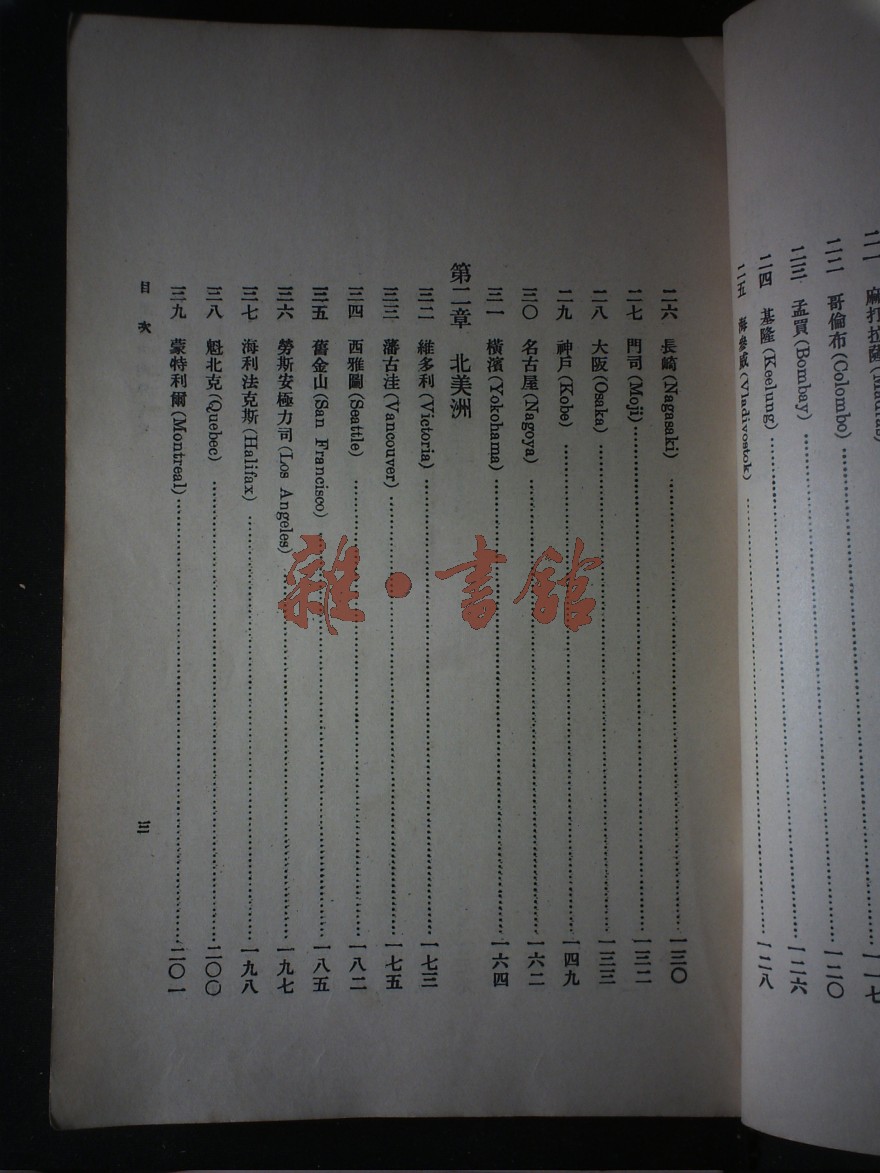 麻打拉薩(Madras)……一一七
二二 哥倫布(Colombo)……一二〇
二三 孟買(Bombay)……一二六
二四 基隆(Keelung)……一二八
二五 海參威(Vladivostok)……
二六 長崎(Nagasaki)……一三〇
二七 門司(Moji)……一三二
二八 大阪(Osaka)……一三三
二九 神戶(Kobe)……一四九
三〇 名古屋(Nagoya)……一六二
三一 橫濱(Yokohama)……一六四
第二章 北美洲
三二 維多利(Victoria)……一七三
三三 藩古洼(Vancouver)……一七五
三四 西雅圖(Seattle)……一八二
三五 舊金山(San Francisco)……一八五
三六 勞斯安極力司(Los Angeles)……一九七
三七 海利法克斯(Halifax)……一九八
三八 魁北克(Quebec)……二〇〇
三九 蒙特利爾(Montreal)……二〇一
目次 三
雜·書館